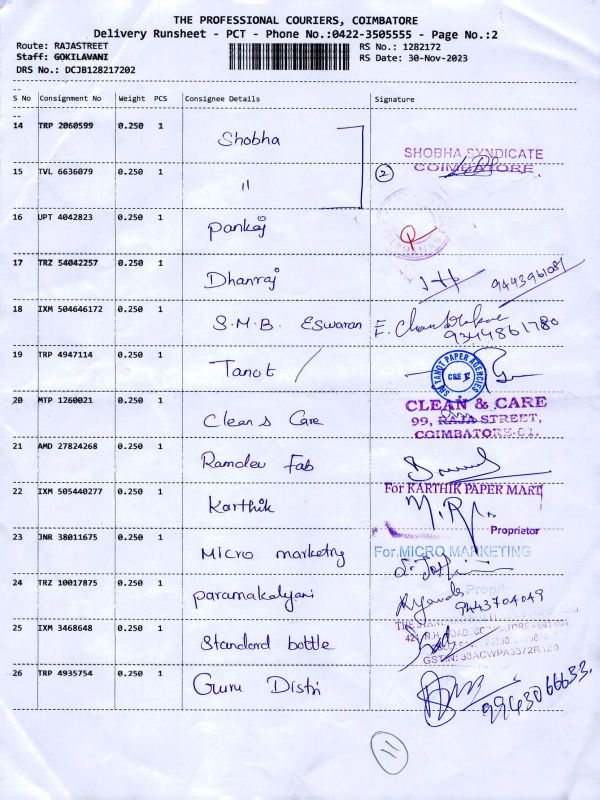 THE PROFESSIONAL COURIERS, COIMBATORE
Delivery Runsheet - PCT - Phone No.:0422-3505555 - Page No.:2
Route: RAJASTREET RS No.: 1282172
Staff: GOKILAVANI RS Date: 30-Nov-2023
DRS No.: DCJB128217202
S No Consignment No Weight PCS Consignee Details Signature
14 TRP 2060599 0.250 1 Shobha
SHOBHA SYNDICATE
COIMBATORE.
15 TVL 6636079 0.250 1 " 2
16 UPT 4042823 0.250 1 Pankaj
17 TRZ 54042257 0.250 1 Dhanraj 9443961081
18 IXM 504646172 0.250 1 S.M.B. Eswaran E. Chandrakar
9344861780
19 TRP 4947114 0.250 1 Tanot
SRI TANOT PAPER AGENCIES
CBE
20 MTP 1260021 0.250 1 Clean & Care
CLEAN & CARE
99, RAJA STREET,
COIMBATORE-01.
21 AMD 27824268 0.250 1 Ramdev Fab
22 IXM 505440277 0.250 1 Karthik
For KARTHIK PAPER MART
Proprietor
23 JNR 38011675 0.250 1 Micro marketing
For MICRO MARKETING
Proprietor
24 TRZ 10017875 0.250 1 paramakalyani
9443704049
25 IXM 3468648 0.250 1 Standard bottle
GSTIN: 33ACWPA3372R1
26 TRP 4935754 0.250 1 Guru Distri
9943066633.
11